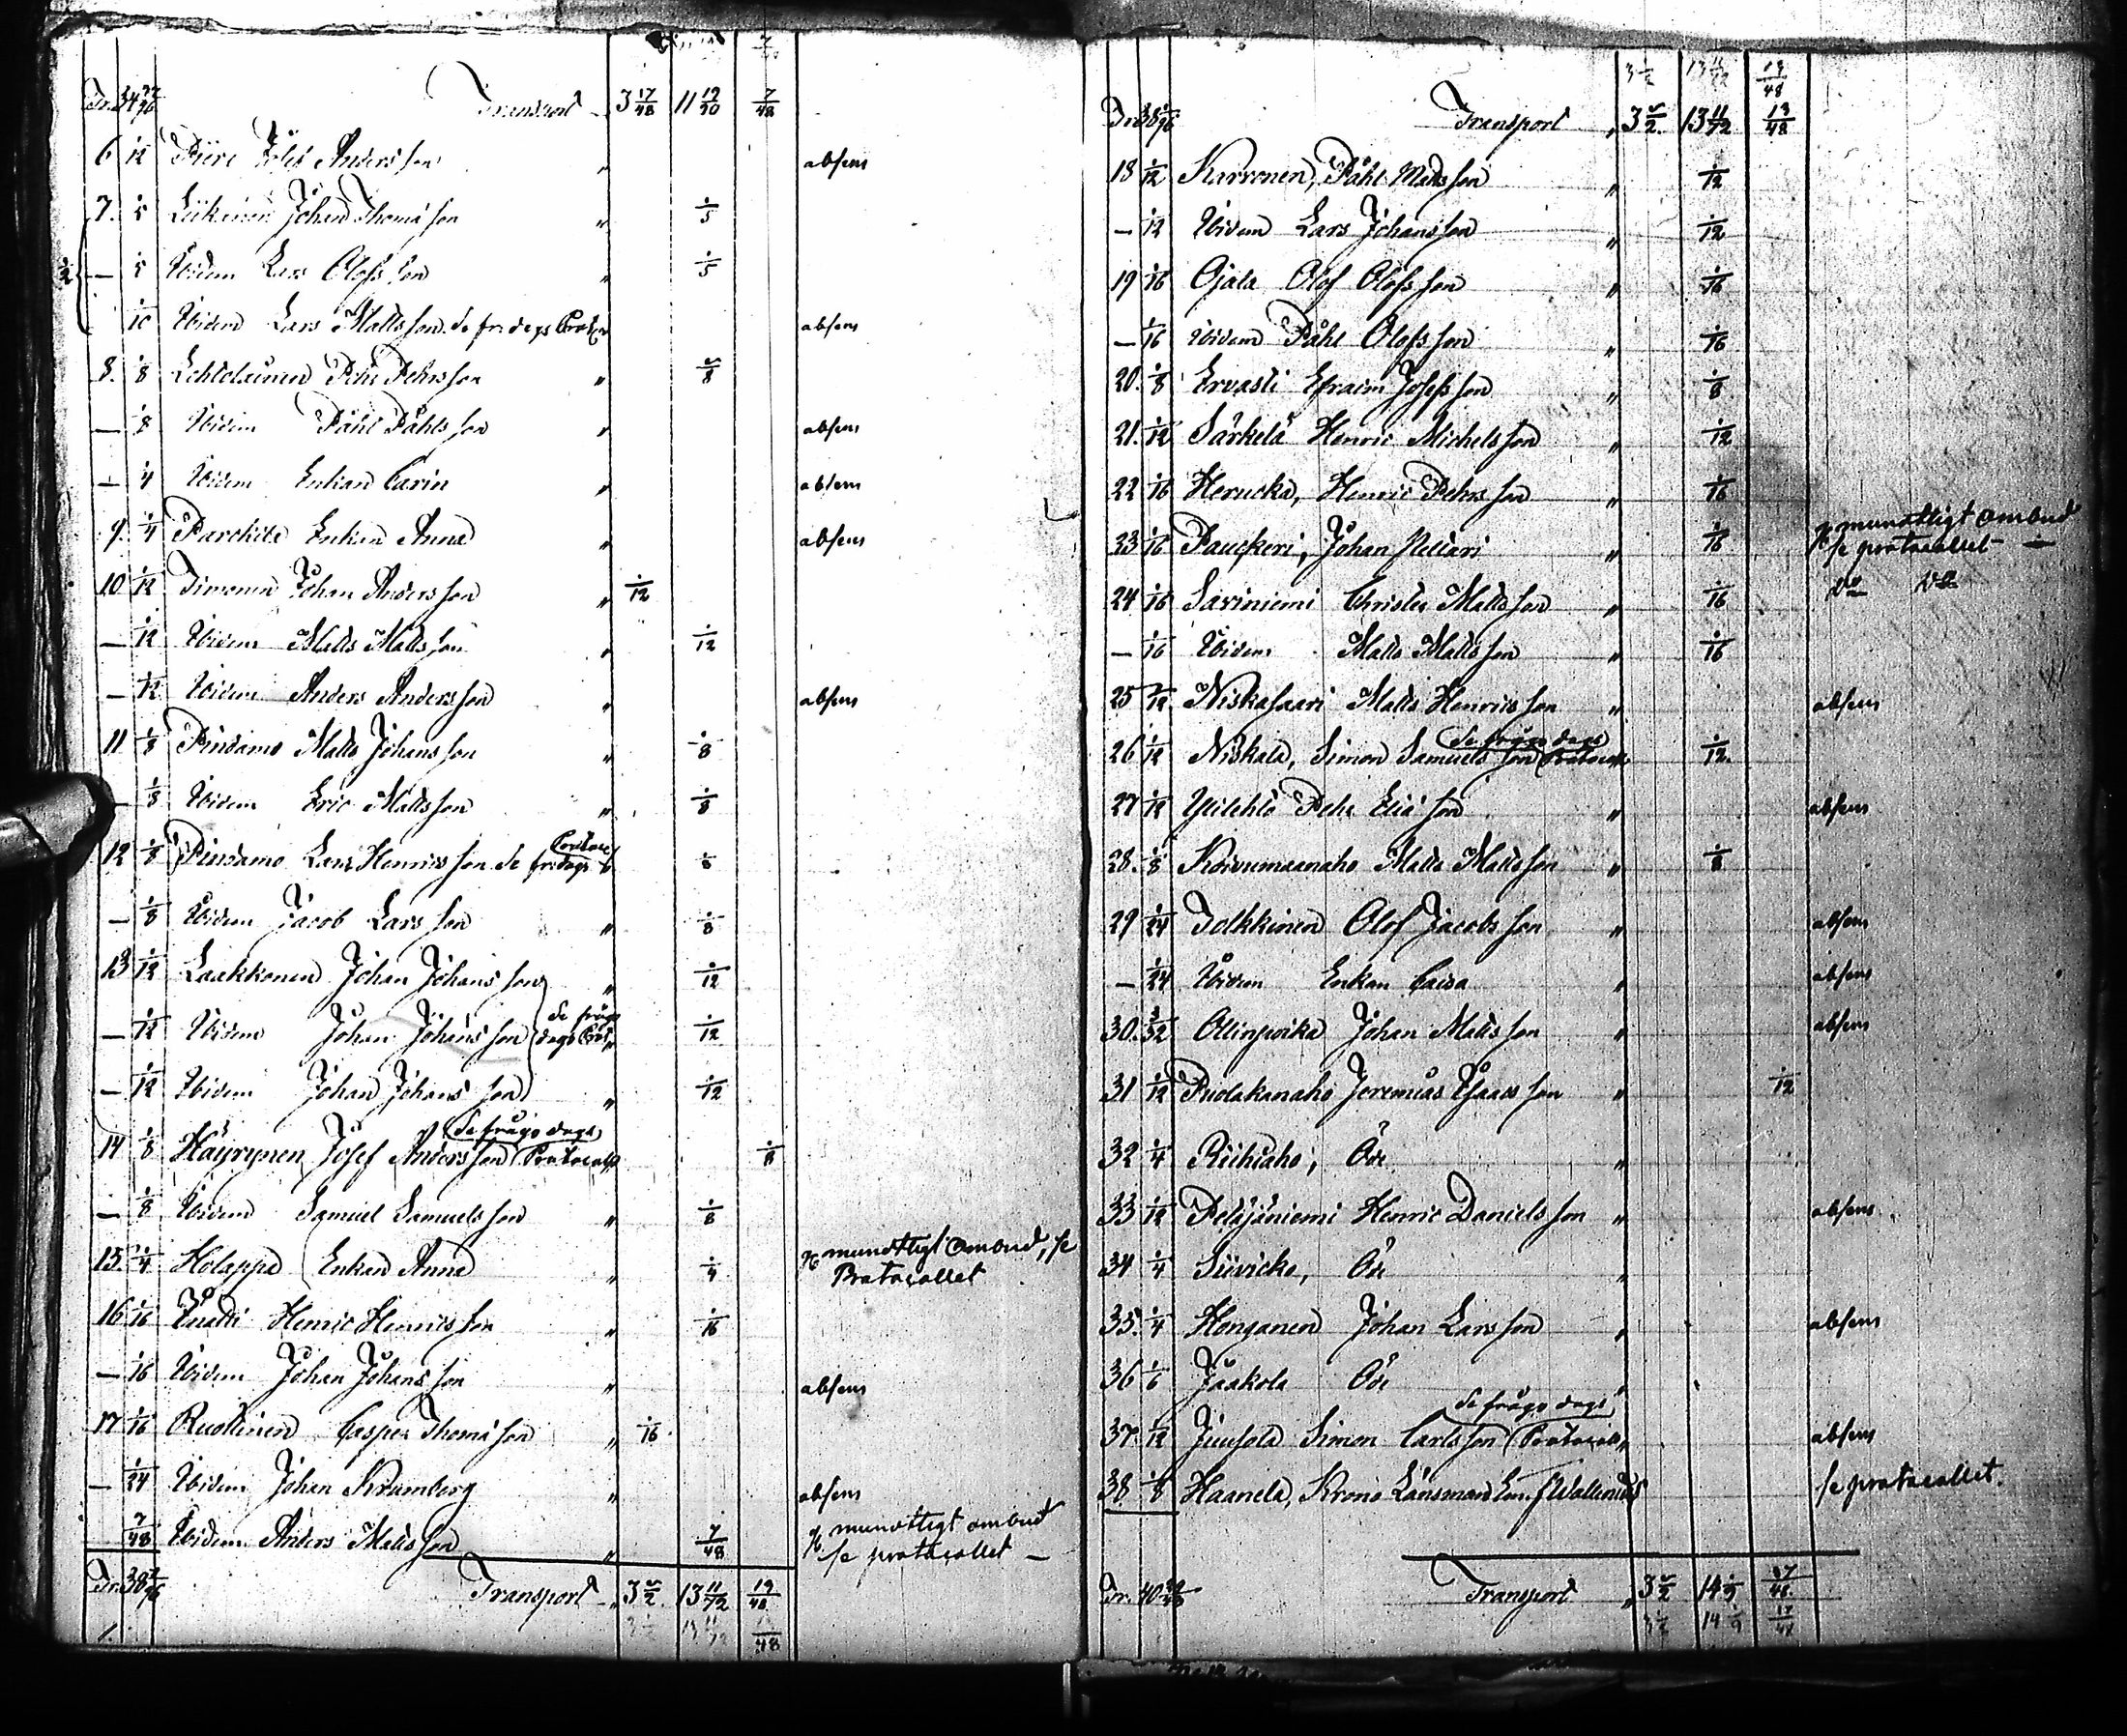 Tr. 34 Transport " 3 17/48 11 19/90 7/48
6 1/12 Piiri Josef Andersson " absens
7. 1/5 Liikanen Johan Thomasson " 1/5
1/2 — 1/5 Ibidem Lars Olofsson " 1/5
1/10 Ibidem Lars Mattsson. Se fr: dags Protoc " absens
8. 1/8 Lehtolainen Pehr Pehrsson " 1/8
— 1/8 Ibidem Påhl Påhlsson " absens
— 1/4 Ibidem Enkan Carin " absens
9. 1/4 Parckila Enkan Anna " absens
10 1/12 Timonen Johan Andersson " 1/12
— 1/12 Ibidem Matts Mattsson " 1/12
— 1/12 Ibidem Anders Andersson " absens
11 1/8 Pindamo Matts Johansson " 1/8
— 1/8 Ibidem Eric Mattsson " 1/8
12 1/8 Pindamo Lars Henricsson. Se fr: dags Protoc 1/8
— 1/8 Ibidem Jacob Larsson " 1/8
13 1/12 Laakkonen Johan Johansson " 1/12
— 1/12 Ibidem Johan Johansson Se frågo dags Prot. " 1/12
— 1/12 Ibidem Johan Johansson " 1/12
14 1/8 Häyrynen Josef Andersson Se frågo dags Protocoll 1/8
— 1/8 Ibidem Samuel Samuelsson " 1/8
15. 1/4 Holappa Enkan Anna " 1/4 mundtligt Ombud, se
Protocollet
16 1/16 Henric Henricsson " 1/16
— 1/16 Ibidem Johan Johansson " absens
17 1/16 Ruottinen Casper Thomasson " 1/16
— 1/24 Ibidem Johan Kramberg " absens
7/48 Ibidem Anders Mattsson " 7/48 mundtligt ombud
se protocollet —
Tr. 38 Transport " 3 1/2. 13 11/72 13/48
3 1/2 13 11/72 /48
3 1/2 13 11/72 13/48
Tr. 38 Transport " 3 1/2. 13 11/72 13/48
18 1/12 Karvonen, Påhl Mattsson " 1/12
— 1/12 Ibidem Lars Johansson " 1/12
19 1/16 Ojala Olof Olofsson " 1/16
— 1/16 Ibidem Påhl Olofsson " 1/16
20. 1/8 Ervasti Efraim Josefsson " 1/8
21. 1/12 Särkelä Henric Michelsson " 1/12
22 1/16 Herucka, Henric Pehrsson " 1/16
23 1/16 Pauckeri, Johan Hellari " 1/16 mundtligt Ombud
se protocollet —
24 1/16 Säviniemi Christer Mattsson " 1/16 do do
— 1/16 Ibidem Matts Mattsson " 1/16
25 1/12 Niskasaari Matts Henricsson " absens
26 1/12 Niskala, Simon Samuelsson Se frågo dags Protocoll 1/12.
27 1/12 Ylilehto Pehr Eliasson " absens
28. 1/8 Koivumaanaho Matts Mattsson " 1/8
29 1/24 Tolkkinen Olof Jacobsson " absens
— 1/24 Ibidem Enkan Caisa " absens
30. 3/32 Ollinpoika Johan Mattsson " absens
31 1/12 Pudakanaho Jeremias Isaacsson " 1/12
32 1/4 Riihiaho, Öde "
33 1/12 Petäjäniemi Henric Danielsson " absens
34 1/4 Siivicko, Öde "
35. 1/4 Honganen Johan Larsson " absens
36 1/6 Jaakola Öde "
37. 1/12 Juusola Simon Carlsson Se frågo dags Protocoll " absens
38. 1/8 Haanela, Krono Länsman Em. Wallenius se protocollet.
Tr. 40 Transport " 3 1/2 14 1/9 17/48
3 1/2 14 1/9 17/48